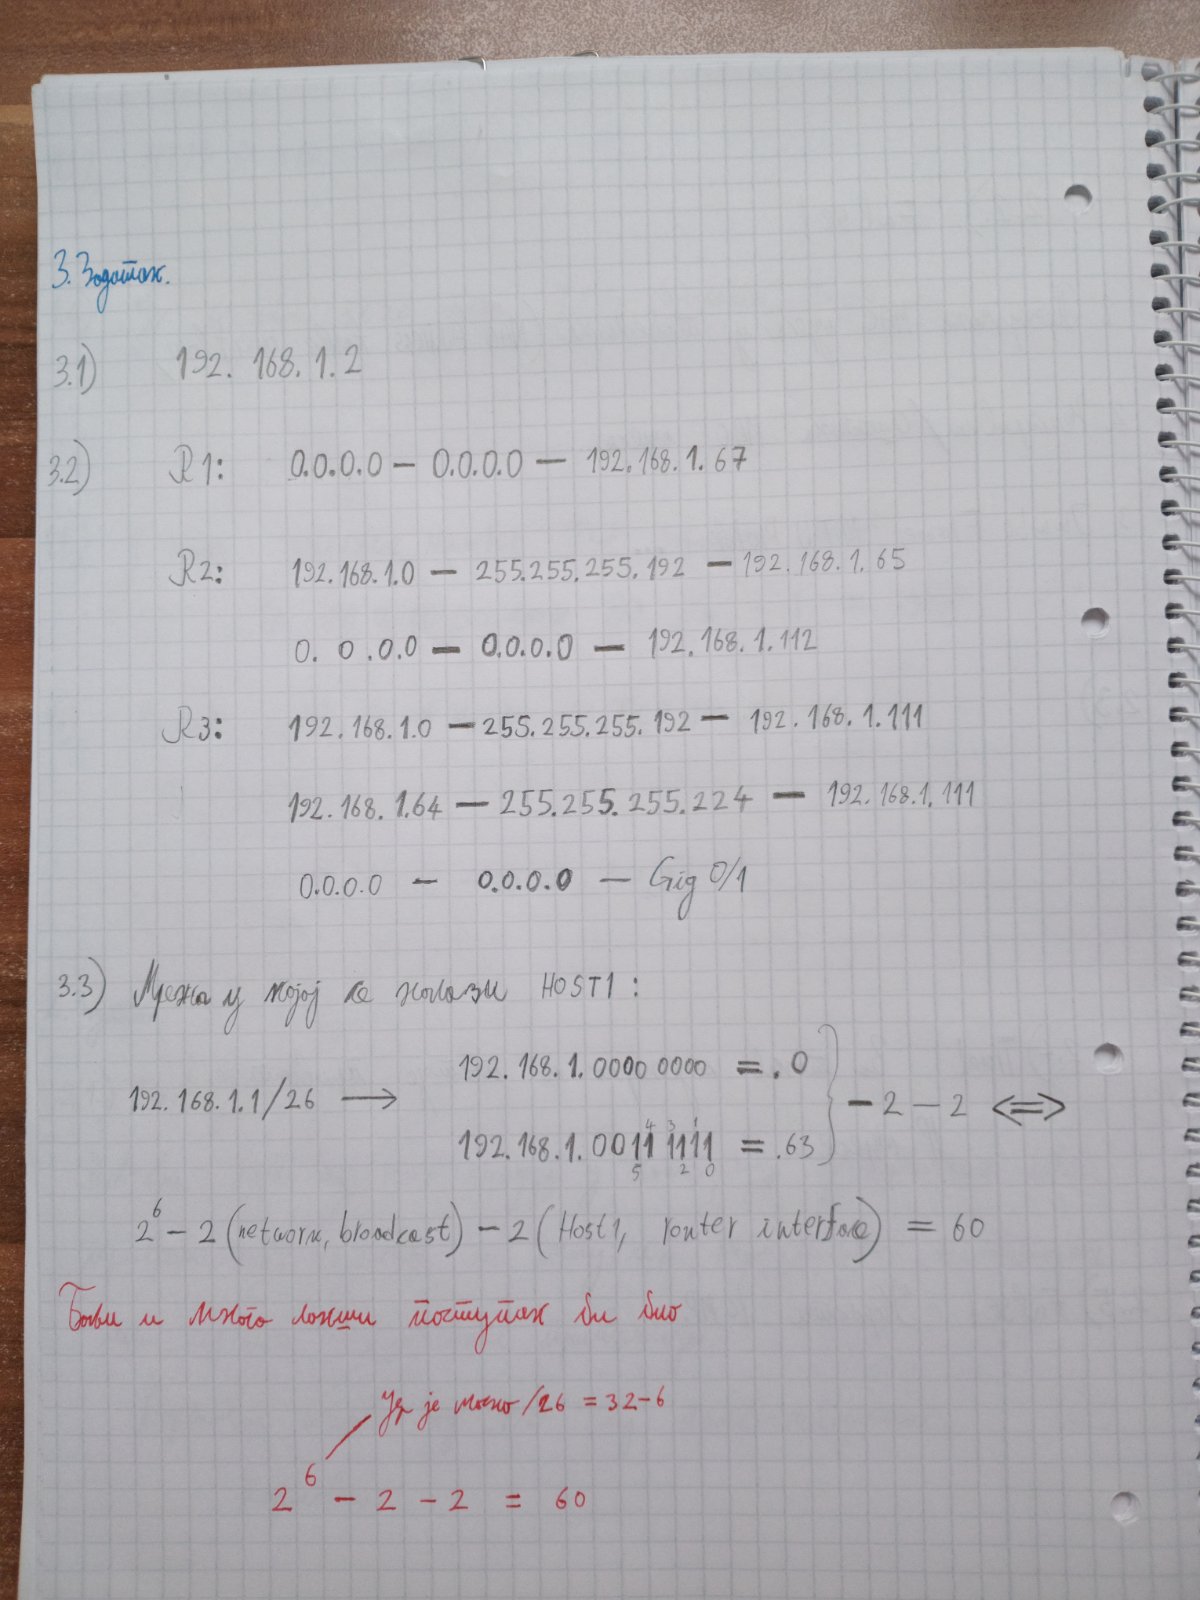 3. Задатак.
3.1) 192.168.1.2
3.2) R1: 0.0.0.0 — 0.0.0.0 — 192.168.1.67
R2: 192.168.1.0 — 255.255.255.192 — 192.168.1.65
0.0.0.0 — 0.0.0.0 — 192.168.1.112
R3: 192.168.1.0 — 255.255.255.192 — 192.168.1.111
192.168.1.64 — 255.255.255.224 — 192.168.1.111
0.0.0.0 — 0.0.0.0 — Gig 0/1
3.3) Мрежа у којој се налази HOST1:
192.168.1.0000 0000 = .0
192.168.1.1/26 → } — 2 — 2 <=>
192.168.1.0011 1111 = .63
5 4 3 2 1 0
2^6 — 2 (network, broadcast) — 2 (Host1, router interface) = 60
и много лакши поступак би био
Јер је /26 = 32-6
2^6 — 2 — 2 = 60